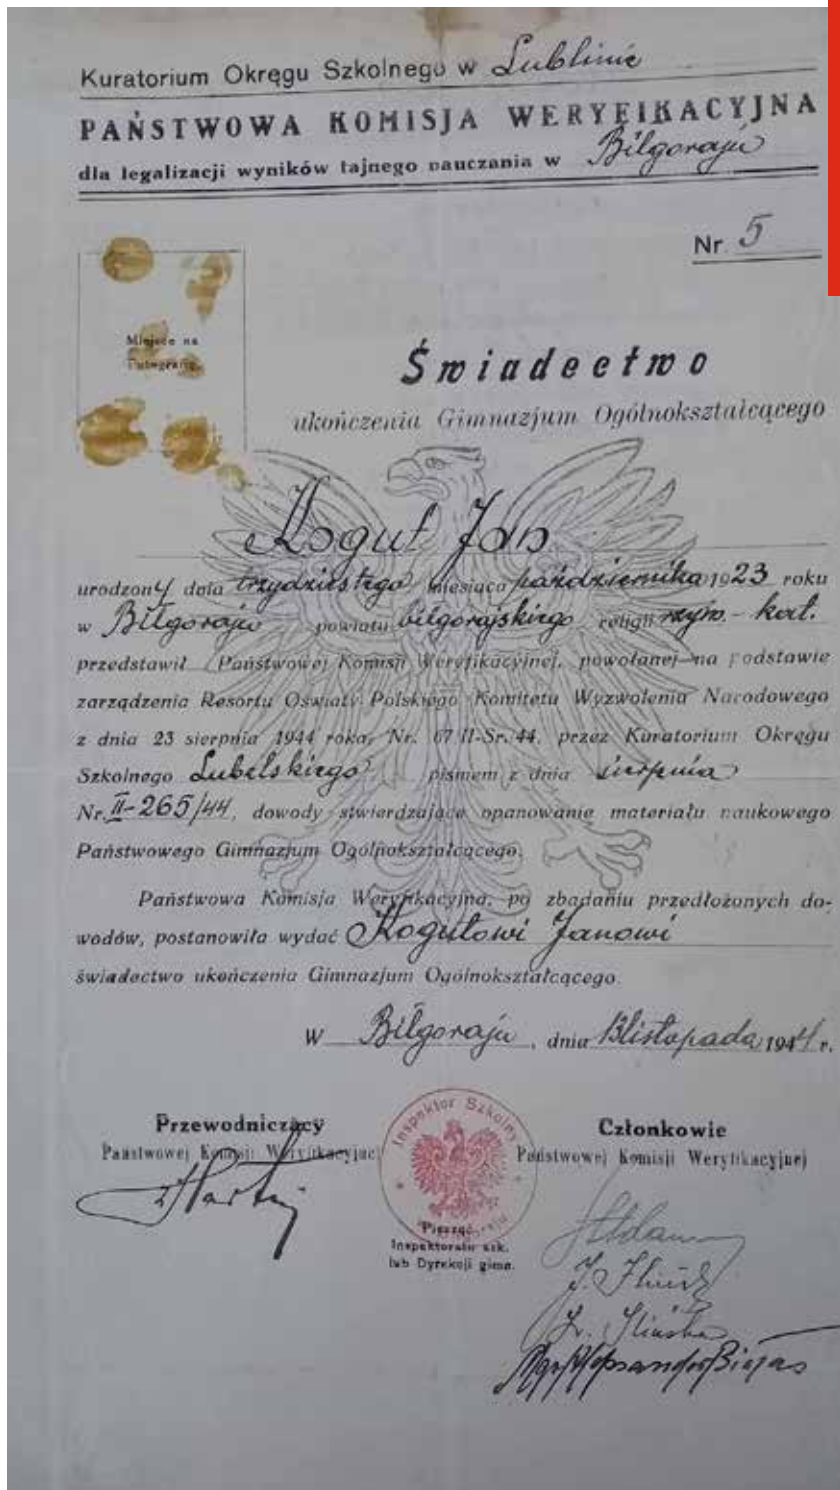 Kuratorium Okręgu Szkolnego w Lublinie
PAŃSTWOWA KOMISJA WERYFIKACYJNA
dla legalizacji wyników tajnego nauczania w Biłgoraju
Nr 5
Miejsce na
fotografię
Świadectwo
ukończenia Gimnazjum Ogólnokształcącego
Kogut Jan
urodzony dnia trzydziestego miesiąca października 1923 roku
w Biłgoraju powiatu biłgorajskiego religii rzym.-kat.
przedstawił Państwowej Komisji Weryfikacyjnej, powołanej na podstawie
zarządzenia Resortu Oświaty Polskiego Komitetu Wyzwolenia Narodowego
z dnia 23 sierpnia 1944 roku, Nr. 67 II-Sr. 44, przez Kuratorium Okręgu
Szkolnego Lubelskiego pismem z dnia sierpnia
Nr. II-265/44, dowody stwierdzające opanowanie materiału naukowego
Państwowego Gimnazjum Ogólnokształcącego.
Państwowa Komisja Weryfikacyjna, po zbadaniu przedłożonych do-
wodów, postanowiła wydać Kogutowi Janowi
świadectwo ukończenia Gimnazjum Ogólnokształcącego.
W Biłgoraju, dnia 13 listopada 1944 r.
Przewodniczący
Państwowej Komisji Weryfikacyjnej
Inspektor Szkolny
Pieczęć
Inspektoratu szk.
lub Dyrekcji gimn.
Członkowie
Państwowej Komisji Weryfikacyjnej